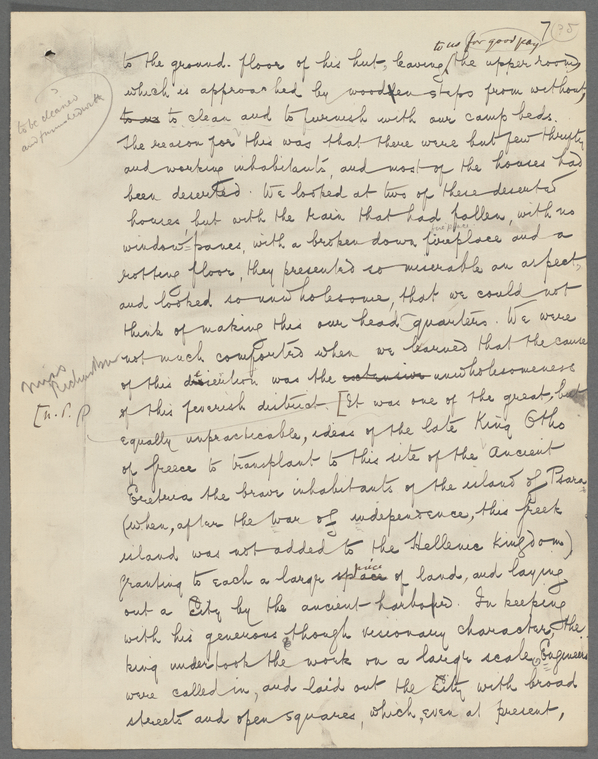 7
35
to us for good pay
to the ground-floor of his hut, leaving (the upper room)
which is approached by wooden steps from without,
to us to clean and to furnish with our camp beds.
to be cleaned
and furnished with
The reason for this was that there were but few thrifty
and working inhabitants, and most of the houses had
been deserted. We looked at two of these deserted
houses, but with the rain that had fallen, with no
window-panes, with a broken down fireplace and a
rotting floor, they presented so miserable an aspect,
and looked so unwholesome, that we could not
think of making this our head quarters. We were
not much comforted when we learned that the cause
of this desertion was the extensive unwholesomeness
Miss
Richardson
[n. P.
of this feverish district. [It was one of the great, but
equally unpracticable, ideas of the late King Otho
of Greece to transplant to this site of the Ancient
Eretria the brave inhabitants of the island of Psara
(when, after the War of independence, this Greek
island was not added to the Hellenic Kingdom)
granting to each a large space piece of land, and laying
out a City by the ancient harbour. In keeping
with his generous though visionary character, the
king undertook the work on a large scale. Engineers
were called in, and laid out the City with broad
streets and open squares, which, even at present,